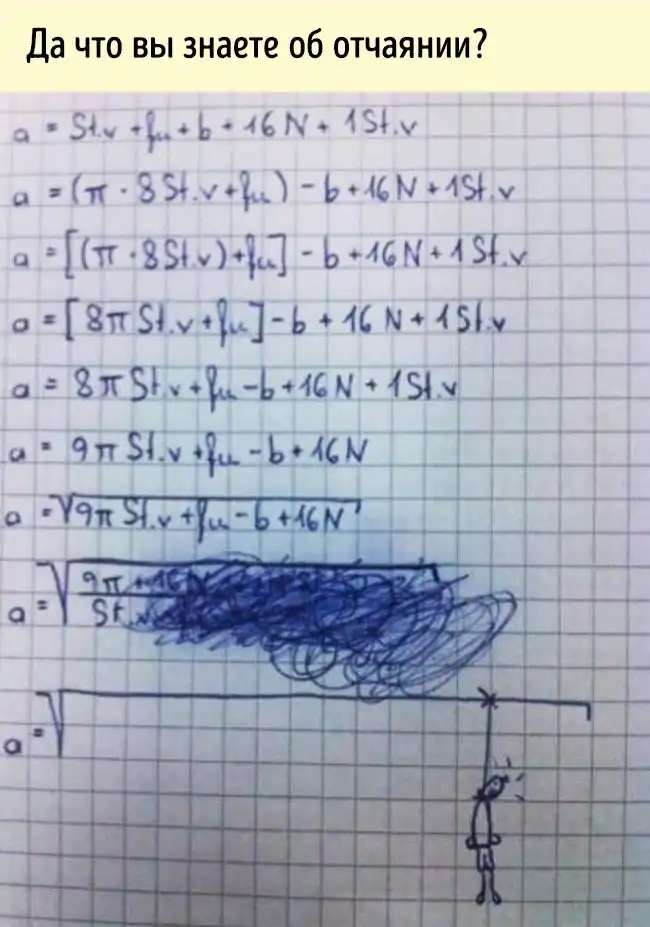 Да что вы знаете об отчаянии?
a = St.v + fu + b + 16N + 1St.v
a = (π · 8St.v + fu) - b + 16N + 1St.v
a = [(π · 8St.v) + fu] - b + 16N + 1St.v
a = [8π St.v + fu] - b + 16N + 1St.v
a = 8π St.v + fu - b + 16N + 1St.v
a = 9π St.v + fu - b + 16N
a = √9π St.v + fu - b + 16N
a = √9π + 16
St.v
a = √